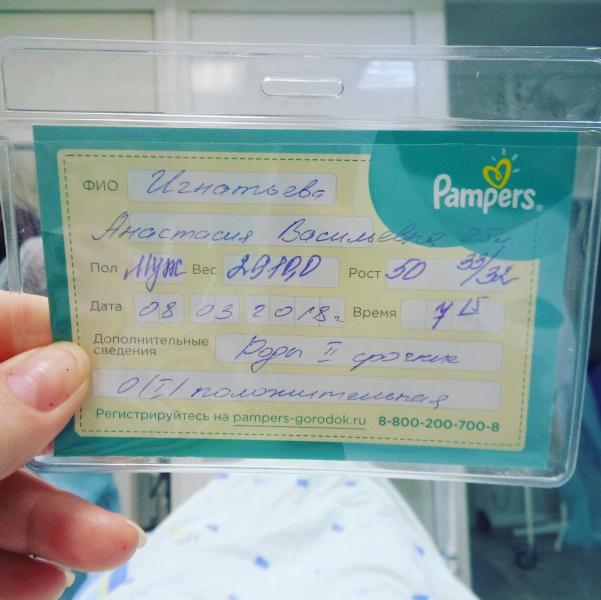 Pampers
ФИО Игнатьева
Анастасия Васильевна 25л
Пол Муж Вес 2910,0 Рост 50 33/32
Дата 08 03 2018г Время 7 15
Дополнительные сведения Роды II срочные
0/I/ положительная
Регистрируйтесь на pampers-gorodok.ru 8-800-200-700-8